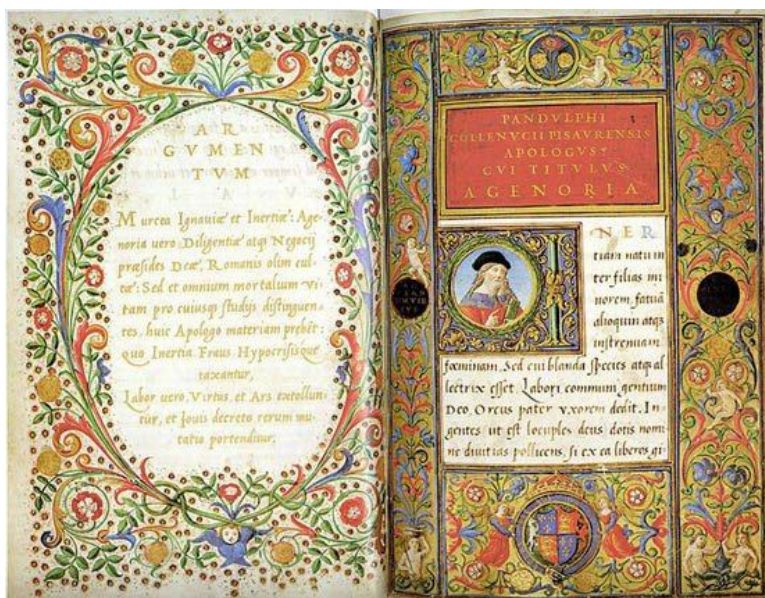 AR
GVMEN
TVM
Murcea Ignauiæ et Inertiæ: Age
noria uero Diligentiæ atqꝫ Negocij
præsides Deæ, Romanis olim cul
tæ: Sed et omnium mortalium vi
tam pro cuiusqꝫ studijs distinguen
tes, huic Apologo materiam prebẽt:
quo Inertia Fraus Hypocrisisque
taxantur,
Labor uero, Virtus, et Ars extollun
tur, et Iouis decreto rerum mu
tatio portenditur.
PANDVLPHI
COLLENVCII PISAVRENSIS
APOLOGVS
CVI TITVLVS
AGENORIA
INER
tiam natu in
ter filias mi
norem, fatuã
alioquin atqꝫ
instrenuam
fœminam, Sed cui blanda species atqꝫ al
lectrix esset, Labori communi gentium
Deo, Orcus pater vxorem dedit, In
gentes ut est locuples deus dotis nomi
ne diuitias pollicens, si ex ea liberos gi